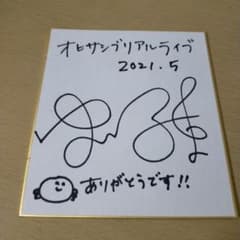 オヒサシブリアルライブ
2021.5
ありがとうです!!